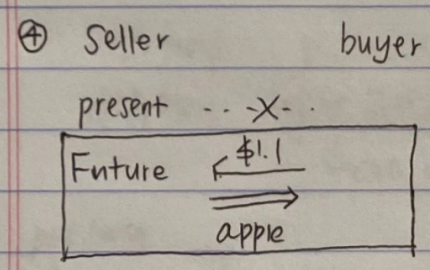 ④ Seller buyer
present - - -X- - -
Future $1.1
apple